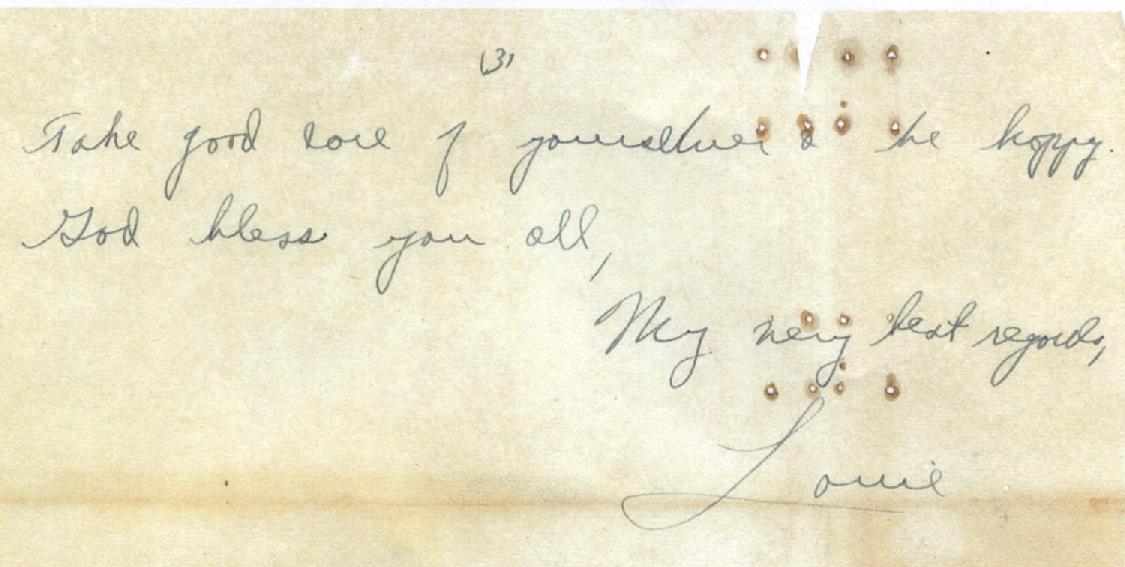 (3)
Take good care of yourselves & be happy.
God bless you all,
My very best regards,
Louie